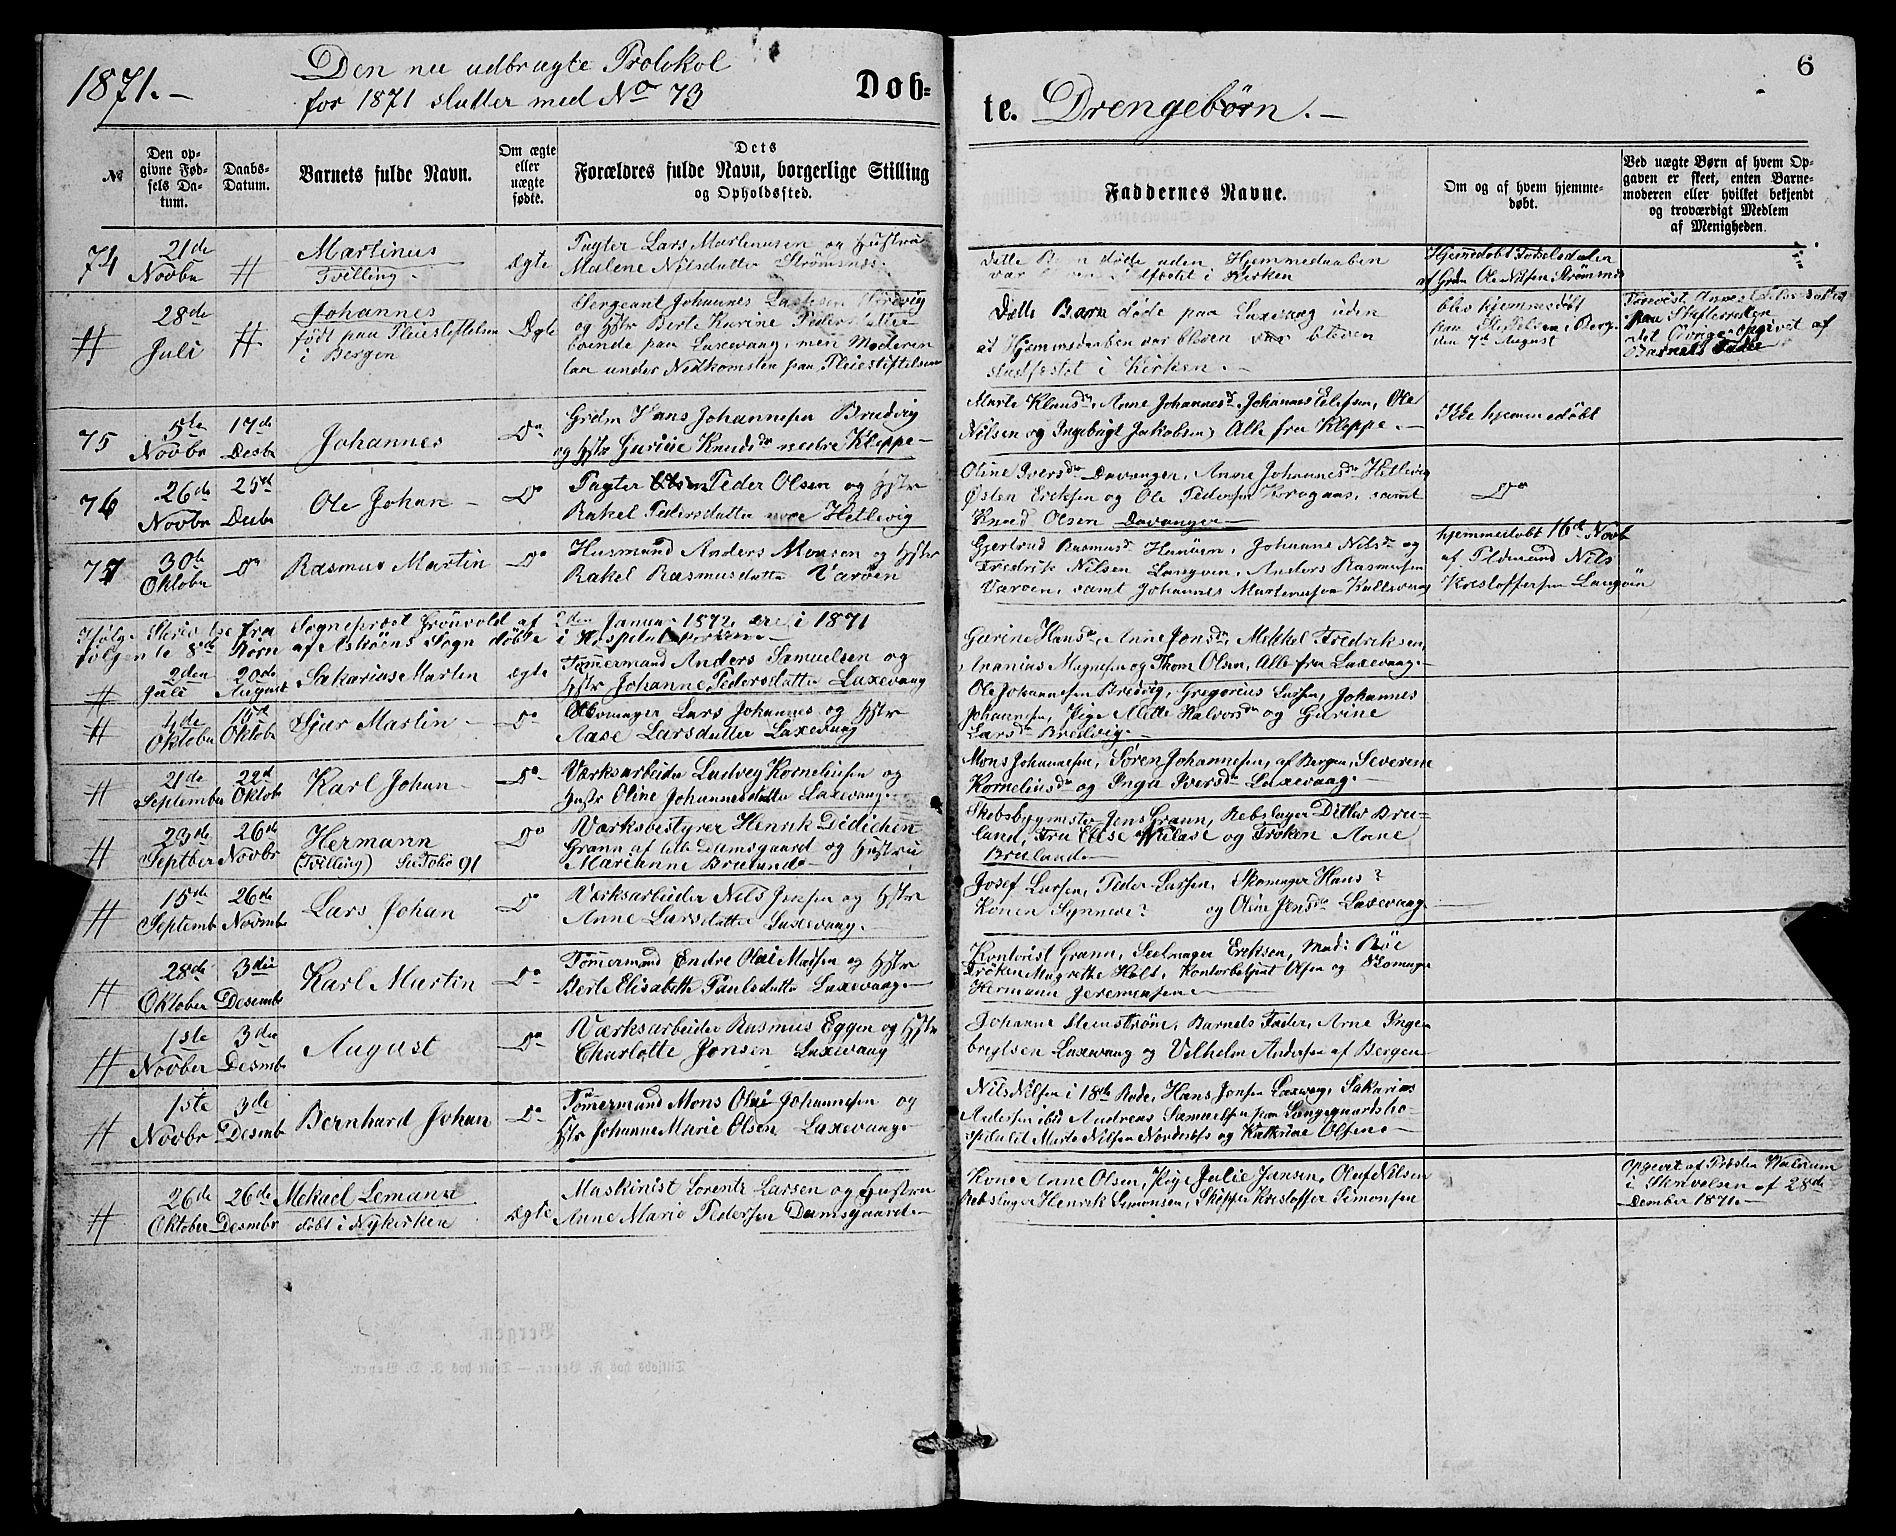 1871.-
Den nu udbrugte Protokol
for 1871 slutter med No 73
Døb=
te. Drengebørn.-
6
№
Den op-
givne Fød-
sels Da-
tum.
Daabs-
Datum.
Barnets fulde Navn.
Om ægte
eller
uægte
fødte.
Dets
Forældres fulde Navn, borgerlige Stilling
og Opholdssted.
Faddernes Navne.
Om og af hvem hjemme-
døbt.
Ved uægte Børn af hvem Op-
gaven er skeet, enten Barne-
moderen eller hvilket bekjendt
og troværdigt Medlem
af Menigheden.
74
21de
Novbr
#
Martinus
Tvilling.
Ægte
Pagter Lars Martinusen og Hustru
Malene Nilsdatter Strømsnes.
Dette Barn døde uden Hjemmedaaben
var stadfæstet i Kirken
Hjemedøbt Fødselsdagen
af Grdm Ole Nilsen Strømsnes
#
28de
Juli
#
Johannes
født paa Pleiestiftelsen
i Bergen
Ægte
Sergeant Johannes Bredvig
og Hstr Berte Karine Pedersdatter
boende paa Laxevaag, men Moderen
laa under Nedkomsten paa Pleiestiftelsen
Dette Barn døde paa Laxevaag uden
at Hjemmedaaben var bleven
stadfæstet i Kirken.-
blev hjemmedøbt
paa Stiftelsen i Berg.
den 7de August
det Øvrige opgivet af
Barnets Fader
75
5te
Novbr
17de
Desbr
Johannes
Do
Grdm Hans Johannesen Bredvig
og Hstr Gurine Knudsdr nedre Kleppe-
Marte Klausdr, Anne Johannesdr, Johannes Elefsen, Ole
Nilsen og Ingebrigt Jakobsen, Alle fra Kleppe.-
Ikke hjemmedøbt
76
26de
Novbr
25de
Desbr
Ole Johan-
Do
Pagter Peder Olsen og Hstr
Rakel Pedersdatter Hetlevig
Oline Iversdr Davanger, Anne Johannesdr Hetlevig
Østen Eriksen og Ole Pedersen, samt
Knud Olsen Davanger-
Do
77
30te
Oktobr
Do
Rasmus Martin
Do
Husmand Anders Monsen og Hstr
Rakel Rasmusdatter Varøen
Gjertrud Rasmusdr Hanøen, Johanne Nilsdr og
Fredrik Nilsen Langøen, Anders Rasmusen
Varøen, samt Johannes Martinusen
hjemmedøbt 16de Novb
af Nils
Kristoffersen Langøen
Ifølge Skrivelse fra Sogneprest Grönvold af 2den Januar 1872, ere i 1871
følgende 8de Børn af Askøens Sogn døbte i Hospitalskirken.-
#
2den
Juli
20de
August
Sakarias Martin
ægte
Tömmermand Anders Samuelsen og
Hstr Johanne Pedersdatter Laxevaag
Gurine Hansdr, Anne Jonsdr, Mikkel Fredriksen
Ananias Magnesen og Thom Olsen, Alle fra Laxevaag-
#
Oktobr
15de
Oktobr
Sjur Martin-
Do
Lars Johannes og Hstr
Aase Larsdatter Laxevaag
Ole Johannesen Bredvig, Gregorius Larsen, Johannes
Johannesen, Pige Mette Halvorsdr og Gurine
Larsdr Bredvig.-
#
21de
September
22de
Oktobr
Karl Johan-
Do
Værksarbeider Ludvig Korneliusen og
Hustr Oline Johannesdatter Laxevaag-
Mons Johannesen, Søren Johannesen, af Bergen, Severine
Korneliusdr og Inga Iversdr Laxevaag-
#
23de
Septber
26de
Novbr
Hermann
(Tvilling) 91
Do
Værksbestyrer Henrik Didichen
Grann af lille Damsgaard og Hustru
Marianne Brøland-
Skibsbygmester Jens Grann, Rebslager Ditlev Brø-
land, Fru Elise og Frøken Arne
Brøland-
#
15de
Septemb
26de
Novmb
Lars Johan
Do
Værksarbeider Nils Josefsen og Hstr
Anne Larsdatter Laxevaag-
Josef Larsen, Peder Larsen, Skomager Hans?
Konen Synneve? og Oline Jensdr Laxevaag
#
28de
Oktober
3die
Desembr
Karl Martin
Do
Tømmermand Endre Olai Madsen og Hstr
Berte Elisabette Paulsdatter Laxevaag-
Kontorist Grann, Seilmager Eriksen, Mad: Bøe
Frøken Magrethe Holt, Kontorbetjent Olsen og Skomager
Hermann Jeremiasen-
#
1ste
Novber
3die
Desmbr
August
Do
Værksarbeider Rasmus Eggen og Hstr
Charlotte Jonsen Laxevaag
Johanne Stenstrøm, Barnets Fader, Arne Inge-
brigtsen Laxevaag og Vilhelm Andersen af Bergen
#
1ste
Novbr
3de
Desmb
Bernhard Johan
Do
Tømmermand Mons Olai Johannesen og
Hstr Johanne Marie Olsen Laxevaag-
Nils Nilsen i 18de Rode, Hans Jonsen Laxevag, Sakarias
Andersen ibid Andreas Samuelsen paa Lungegaardsho-
spitalet Marte Nilsen Nordnæs og Katrine Olsen-
#
26de
Oktober
26de
Desmbr
Mekael Lemann
døbt i Nykirken
Ægte
Maskinist Lorents Larsen og Hustru
Anne Marie Pedersen Damsgaard-
Kone Anne Olsen, Pige Julie Jansen, Oluf Nilsen
Rebslager Henrik Simonsen, Skipper Kristoffer Simonsen
Opgivet af Presten
i Skrivelsen af 28de
Dember 1871-